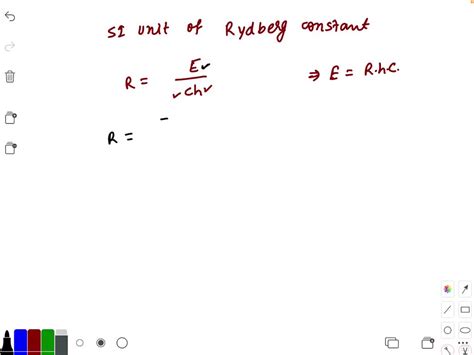 SI unit of Rydberg constant
R = E / ch ⇒ E = R.h.c.
R =